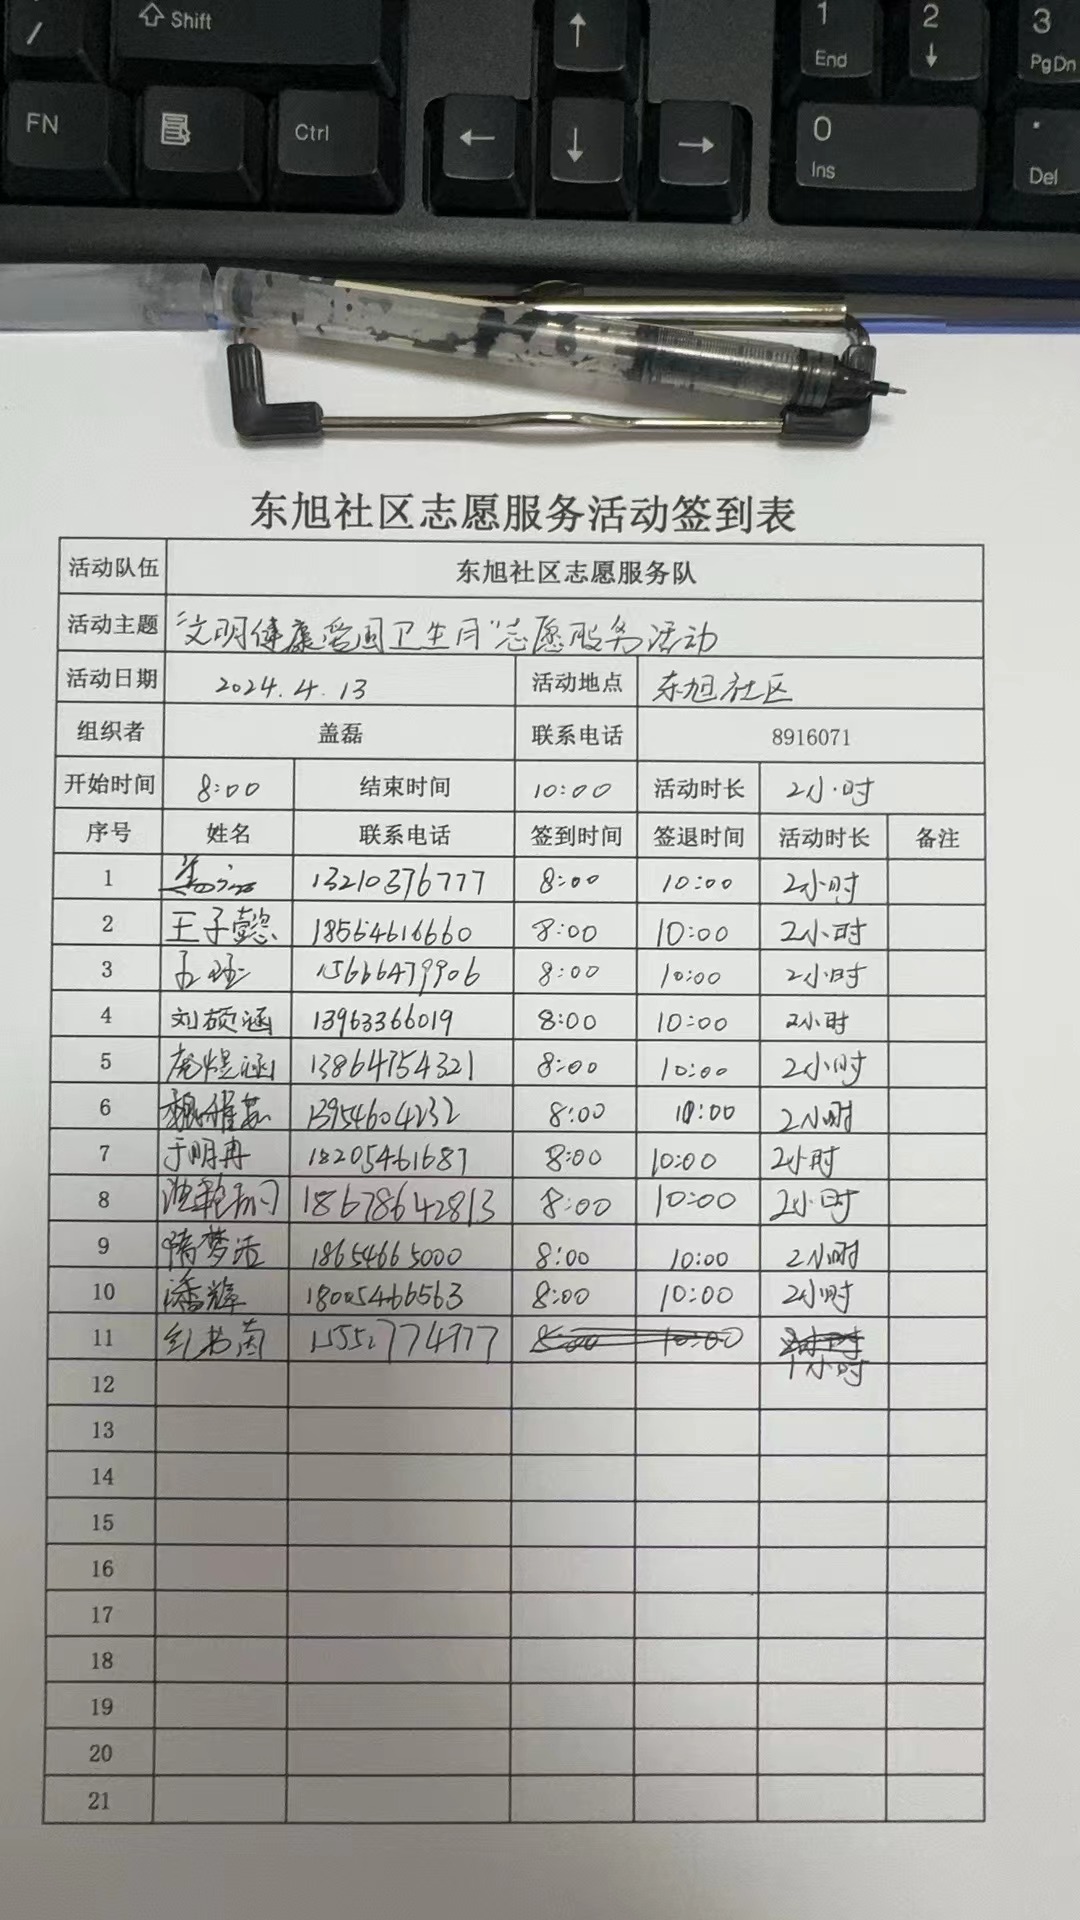 / Shift ↑ 1 End 2 ↓ 3 PgDn
FN Ctrl ← ↓ → 0 Ins . Del
东旭社区志愿服务活动签到表
活动队伍 东旭社区志愿服务队
活动主题 "文明健康爱国卫生月"志愿服务活动
活动日期 2024.4.13 活动地点 东旭社区
组织者 盖磊 联系电话 8916071
开始时间 8:00 结束时间 10:00 活动时长 2小时
序号 姓名 联系电话 签到时间 签退时间 活动时长 备注
1 13210376777 8:00 10:00 2小时
2 王子懿 18564616660 8:00 10:00 2小时
3 15666479906 8:00 10:00 2小时
4 刘硕涵 13963366019 8:00 10:00 2小时
5 13864754321 8:00 10:00 2小时
6 13954604232 8:00 10:00 2小时
7 于明冉 18205461687 8:00 10:00 2小时
8 18678642813 8:00 10:00 2小时
9 隋梦洁 18654665000 8:00 10:00 2小时
10 潘辉 18005466563 8:00 10:00 2小时
11 15552774977 8:00 10:00 2小时
1小时
12
13
14
15
16
17
18
19
20
21